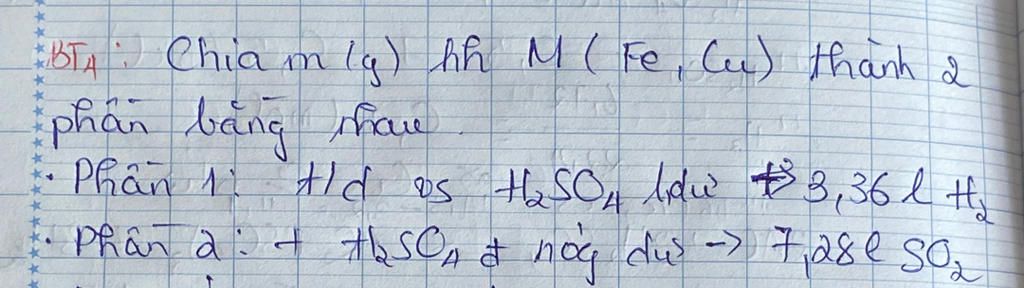 BT4: Chia m (g) hh M ( Fe, Cu) thành 2
phần bằng nhau.
• Phần 1: t/d vs H₂SO₄ l,dư → 3,36 l H₂
• Phần 2: + H₂SO₄ đ nóg dư → 7,28 l SO₂